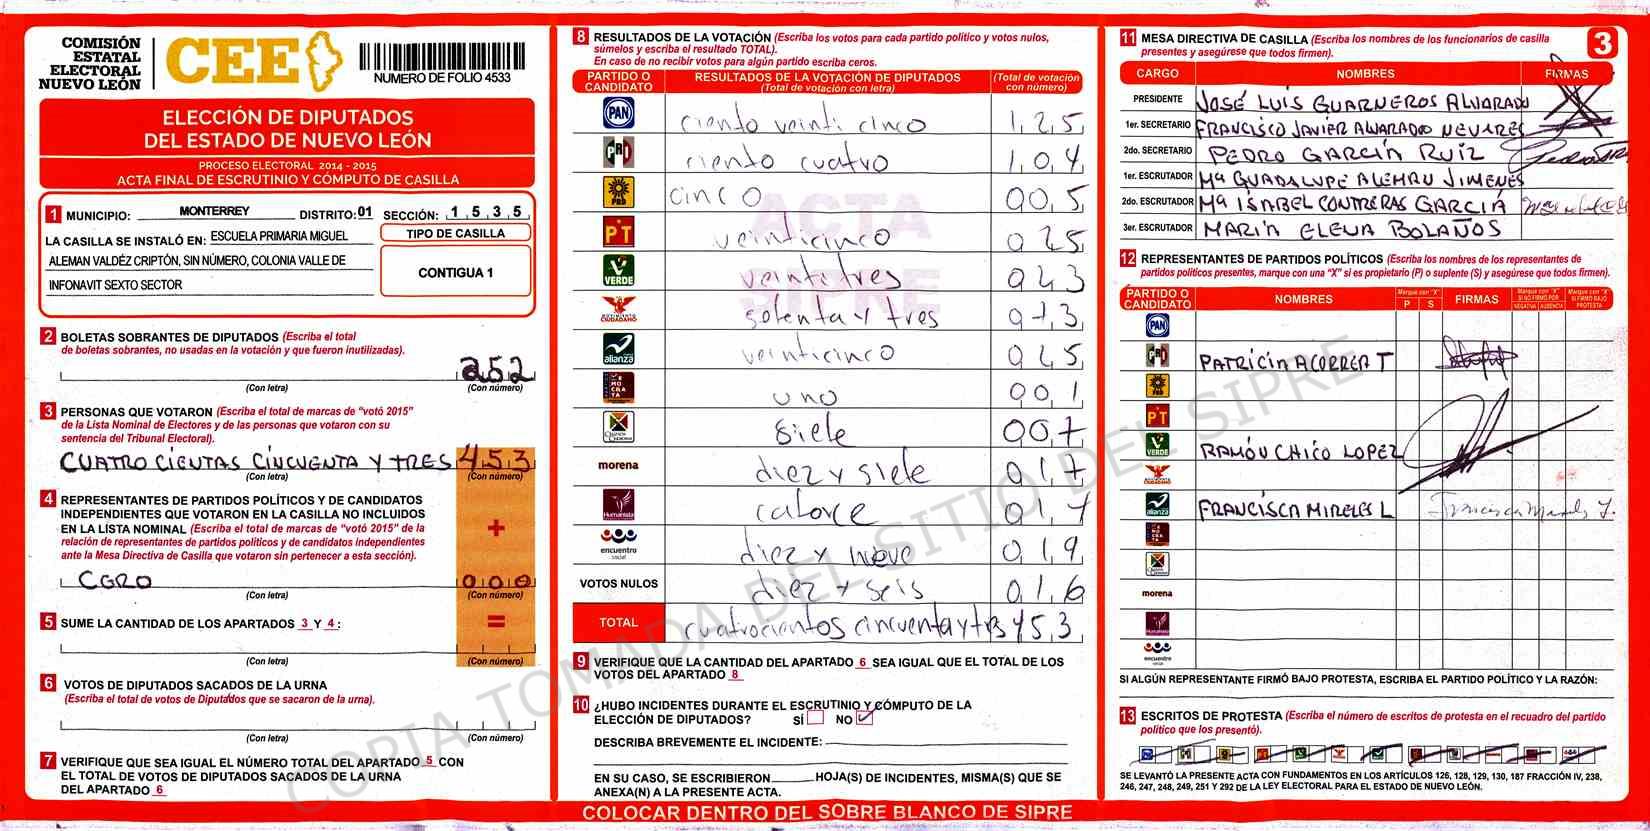 COMISIÓN
ESTATAL
ELECTORAL
NUEVO LEÓN
CEE
NUMERO DE FOLIO 4533
ELECCIÓN DE DIPUTADOS
DEL ESTADO DE NUEVO LEÓN
PROCESO ELECTORAL 2014 - 2015
ACTA FINAL DE ESCRUTINIO Y CÓMPUTO DE CASILLA
1 MUNICIPIO: MONTERREY DISTRITO: 01 SECCIÓN: 1 5 3 5
LA CASILLA SE INSTALÓ EN: ESCUELA PRIMARIA MIGUEL
ALEMAN VALDÉZ CRIPTÓN, SIN NÚMERO, COLONIA VALLE DE
INFONAVIT SEXTO SECTOR
TIPO DE CASILLA
CONTIGUA 1
2 BOLETAS SOBRANTES DE DIPUTADOS (Escriba el total
de boletas sobrantes, no usadas en la votación y que fueron inutilizadas).
252
(Con letra) (Con número)
3 PERSONAS QUE VOTARON (Escriba el total de marcas de “votó 2015”
de la Lista Nominal de Electores y de las personas que votaron con su
sentencia del Tribunal Electoral).
CUATRO CIENTAS CINCUENTA Y TRES 453
(Con letra) (Con número)
4 REPRESENTANTES DE PARTIDOS POLÍTICOS Y DE CANDIDATOS
INDEPENDIENTES QUE VOTARON EN LA CASILLA NO INCLUIDOS
EN LA LISTA NOMINAL (Escriba el total de marcas de “votó 2015” de la
relación de representantes de partidos políticos y de candidatos independientes
ante la Mesa Directiva de Casilla que votaron sin pertenecer a esta sección).
+
CERO 000
(Con letra) (Con número)
5 SUME LA CANTIDAD DE LOS APARTADOS 3 Y 4:
=
(Con letra) (Con número)
6 VOTOS DE DIPUTADOS SACADOS DE LA URNA
(Escriba el total de votos de Diputados que se sacaron de la urna).
(Con letra) (Con número)
7 VERIFIQUE QUE SEA IGUAL EL NÚMERO TOTAL DEL APARTADO 5 CON
EL TOTAL DE VOTOS DE DIPUTADOS SACADOS DE LA URNA
DEL APARTADO 6
8 RESULTADOS DE LA VOTACIÓN (Escriba los votos para cada partido político y votos nulos,
súmelos y escriba el resultado TOTAL).
En caso de no recibir votos para algún partido escriba ceros.
PARTIDO O CANDIDATO
RESULTADOS DE LA VOTACIÓN DE DIPUTADOS
(Total de votación con letra)
(Total de votación con número)
PAN ciento veinti cinco 1 2 5
PRI ciento cuatro 1 0 4
PRD cinco 0 0 5
PT veinticinco 0 2 5
VERDE veintitres 0 2 3
MOVIMIENTO CIUDADANO setenta y tres 0 7 3
alianza veinticinco 0 2 5
uno 0 0 1
siete 0 0 7
morena diez y siete 0 1 7
Humanista catorce 0 1 4
encuentro social diez y nueve 0 1 9
VOTOS NULOS diez y seis 0 1 6
TOTAL cuatrocientos cincuenta y tres 4 5 3
ACTA
SIPRE
9 VERIFIQUE QUE LA CANTIDAD DEL APARTADO 6 SEA IGUAL QUE EL TOTAL DE LOS
VOTOS DEL APARTADO 8
10 ¿HUBO INCIDENTES DURANTE EL ESCRUTINIO Y CÓMPUTO DE LA
ELECCIÓN DE DIPUTADOS? SÍ NO
DESCRIBA BREVEMENTE EL INCIDENTE:
EN SU CASO, SE ESCRIBIERON HOJA(S) DE INCIDENTES, MISMA(S) QUE SE
ANEXA(N) A LA PRESENTE ACTA.
COLOCAR DENTRO DEL SOBRE BLANCO DE SIPRE
11 MESA DIRECTIVA DE CASILLA (Escriba los nombres de los funcionarios de casilla
presentes y asegúrese que todos firmen).
3
CARGO NOMBRES FIRMAS
PRESIDENTE JOSÉ LUIS GUARNEROS ALVARADO
1er. SECRETARIO FRANCISCO JAVIER ALVARADO NEVARES
2do. SECRETARIO PEDRO GARCIA RUIZ
1er. ESCRUTADOR Mª GUADALUPE ALEMAN JIMENES
2do. ESCRUTADOR Mª ISABEL CONTRERAS GARCIA
3er. ESCRUTADOR MARIA ELENA BOLAÑOS
12 REPRESENTANTES DE PARTIDOS POLÍTICOS (Escriba los nombres de los representantes de
partidos políticos presentes, marque con una “X” si es propietario (P) o suplente (S) y asegúrese que todos firmen).
PARTIDO O CANDIDATO
NOMBRES
Marque con “X”
P S
FIRMAS
Marque con “X” SI NO FIRMÓ POR
NEGATIVA AUSENCIA
Marque con “X” SI FIRMÓ BAJO PROTESTA
PAN
PRI PATRICIA A CORREA T
PRD
PT
VERDE RAMÓN CHICO LOPEZ
alianza FRANCISCA MIRELES L
morena
Humanista
encuentro social
SI ALGÚN REPRESENTANTE FIRMÓ BAJO PROTESTA, ESCRIBA EL PARTIDO POLÍTICO Y LA RAZÓN:
13 ESCRITOS DE PROTESTA (Escriba el número de escritos de protesta en el recuadro del partido
político que los presentó).
SE LEVANTÓ LA PRESENTE ACTA CON FUNDAMENTOS EN LOS ARTÍCULOS 126, 128, 129, 130, 187 FRACCIÓN IV, 238,
246, 247, 248, 249, 251 Y 292 DE LA LEY ELECTORAL PARA EL ESTADO DE NUEVO LEÓN.
COPIA TOMADA DEL SITIO DEL SIPRE